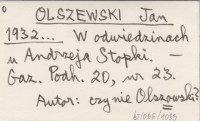 OLSZEWSKI Jan
1932... W odwiedzinach
u Andrzeja Stopki. —
Gaz. Podh. 20, nr 23.
Autor: czy nie Olszowski?